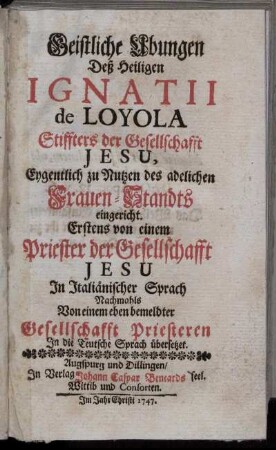 Geistliche Ubungen
Deß Heiligen
IGNATII
de LOYOLA
Stiffters der Gesellschafft
JESU,
Eygentlich zu Nutzen des adelichen
Frauen-Standts
eingericht.
Erstens von einem
Priester der Gesellschafft
JESU
In Italiänischer Sprach
Nachmahls
Von einem eben bemeldter
Gesellschafft Priesteren
In die Teutsche Sprach übersetzet.
Augspurg und Dillingen/
In Verlag Johann Caspar Bencards seel.
Wittib und Consorten.
Im Jahr Christi 1747.